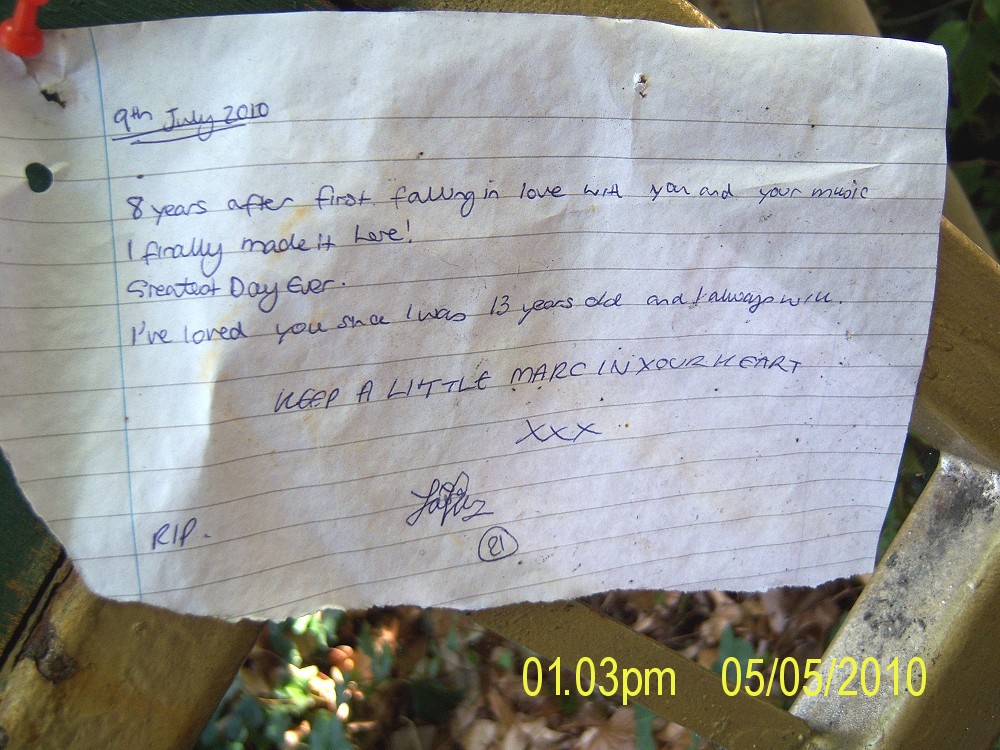 9th July 2010
8 years after first falling in love with you and your music
I finally made it here!
Greatest Day Ever.
I've loved you since I was 13 years old and I always will.
KEEP A LITTLE MARC IN YOUR HEART
XXX
RIP.
21
01.03pm 05/05/2010